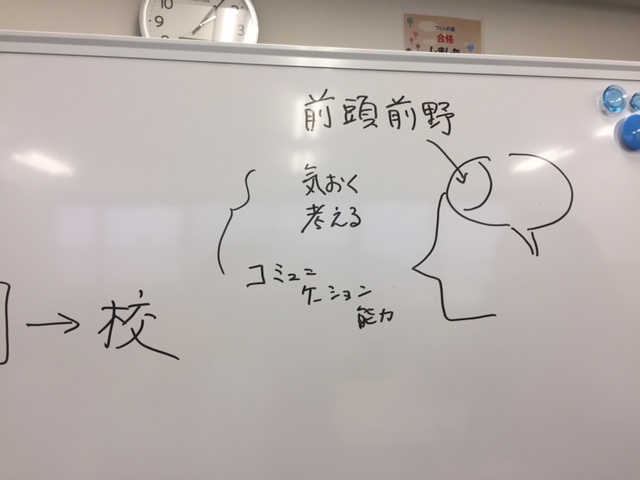 10
9
3
合格
しました
前頭前野
気おく
考える
コミュニ
ケーション
能力
→ 校